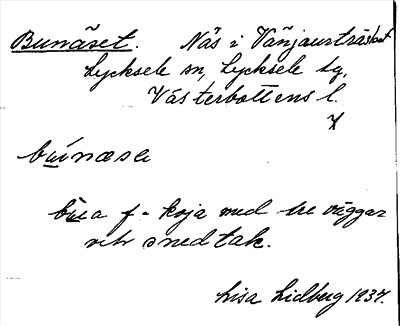 Bunäset. Näs i Vänjaurträsket
Lycksele sn, Lycksele tg,
Västerbottens l.
búnæsə
búa f. - koja med tre väggar
och snedtak.
Lisa Lidberg 1937.